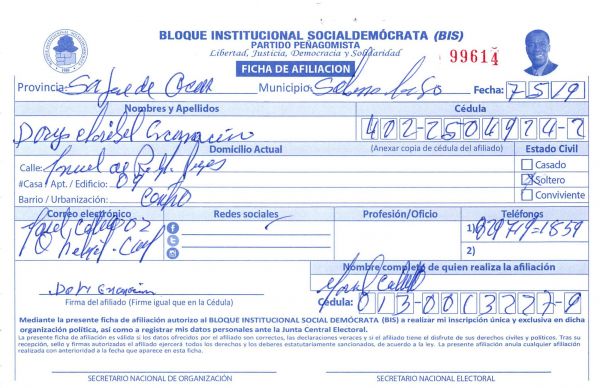 BLOQUE INSTITUCIONAL SOCIALDEMÓCRATA (BIS)
PARTIDO PEÑAGOMISTA
Libertad, Justicia, Democracia y Solidaridad
99614
FICHA DE AFILIACION
Provincia: San José de Ocoa Municipio: Sabana Larga Fecha: 7/5/19
Nombres y Apellidos Cédula
Encarnación 402-2504974-2
Domicilio Actual (Anexar copia de cédula del afiliado) Estado Civil
Calle: Manuel de Reyes
Casado
#Casa / Apt. / Edificio: 09
Soltero
Barrio / Urbanización: Centro
Conviviente
Correo electrónico Redes sociales Profesión/Oficio Teléfonos
1) 829 719-1859
2)
Nombre completo de quien realiza la afiliación
Encarnación
Firma del afiliado (Firme igual que en la Cédula)
Cédula: 013-0013227-9
Mediante la presente ficha de afiliación autorizo al BLOQUE INSTITUCIONAL SOCIAL DEMÓCRATA (BIS) a realizar mi inscripción única y exclusiva en dicha
organización política, así como a registrar mis datos personales ante la Junta Central Electoral.
La presente ficha de afiliación es válida si los datos ofrecidos por el afiliado son correctos, las declaraciones veraces y si el afiliado tiene el disfrute de sus derechos civiles y políticos. Tras su
recepción, sello y firmas autorizadas el afiliado ejercerá todos los derechos y los deberes estatutariamente sancionados, de acuerdo a la ley. La presente afiliación anula cualquier afiliación
realizada con anterioridad a la fecha que aparece en esta ficha.
SECRETARIO NACIONAL DE ORGANIZACIÓN SECRETARIO NACIONAL ELECTORAL